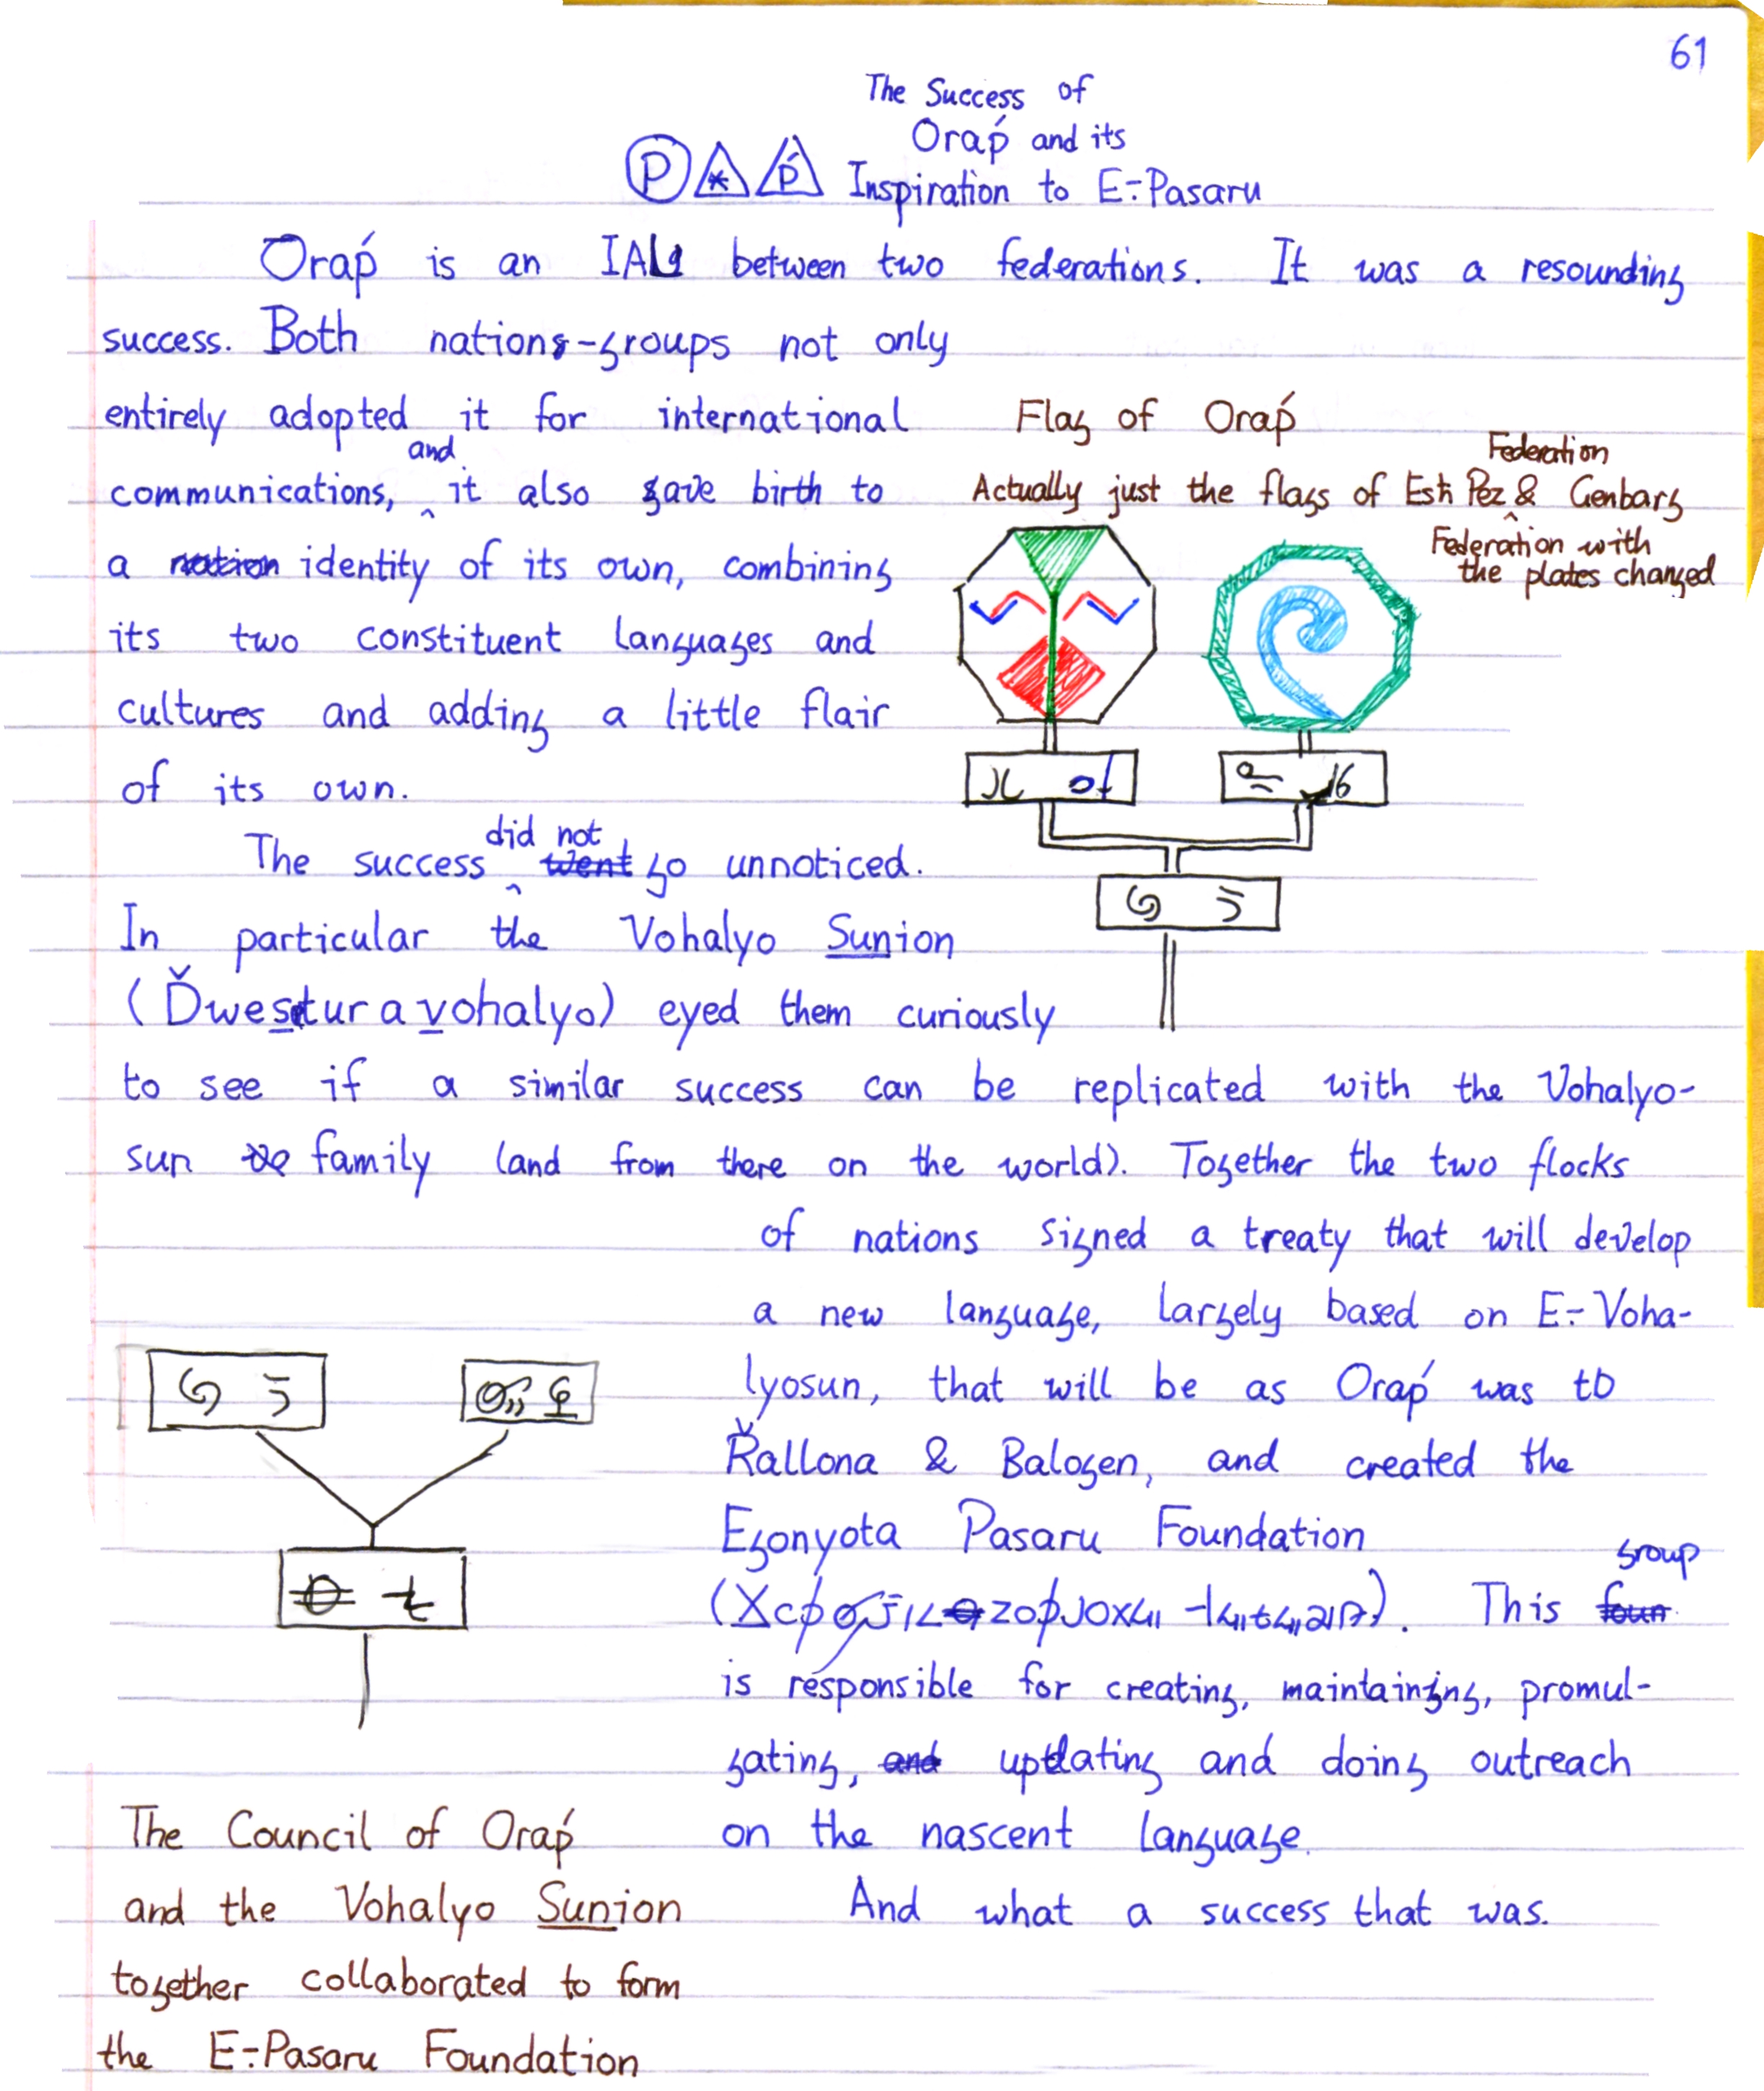 61
The Success of
Oraṕ and its
P * ṕ Inspiration to E÷Pasaru
Oraṕ is an IAL between two federations. It was a resounding
success. Both nations-groups not only
entirely adopted it for international
communications, and it also gave birth to
a nation identity of its own, combining
its two constituent languages and
cultures and adding a little flair
of its own.
Flag of Oraṕ
Actually just the flags of Esħ Pez Federation & Genbarg
Federation with
the plates changed
The success did not went go unnoticed.
In particular the Vohalyo Sunion
(Ďwestur a vohalyo) eyed them curiously
to see if a similar success can be replicated with the Vohalyo-
sun family (and from there on the world). Together the two flocks
of nations signed a treaty that will develop
a new language, largely based on E÷Voha-
lyosun, that will be as Oraṕ was to
Řallona & Balogen, and created the
Egonyota Pasaru Foundation
This foun group
is responsible for creating, maintaining, promul-
gating, and updating and doing outreach
on the nascent language.
And what a success that was.
The Council of Oraṕ
and the Vohalyo Sunion
together collaborated to form
the E÷Pasaru Foundation